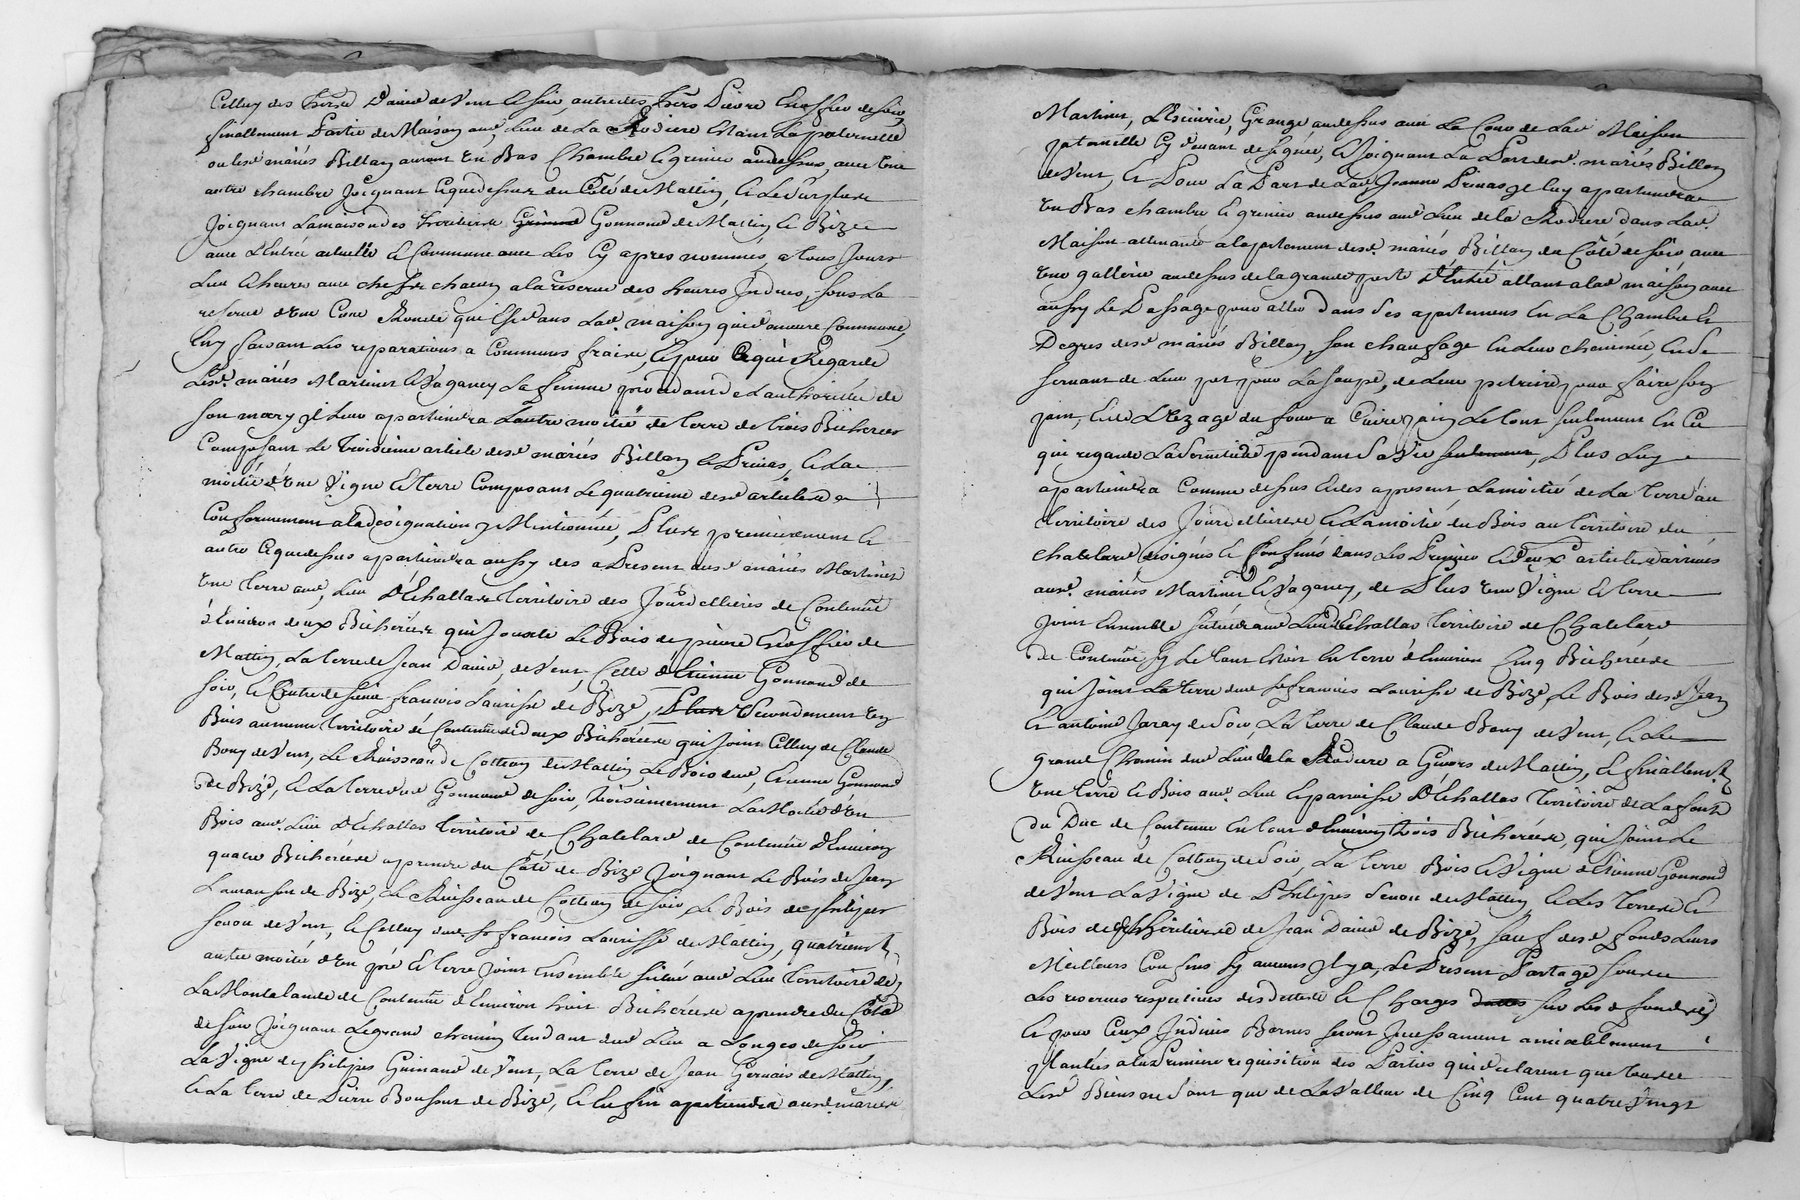 Celluy des hoirs Daime de Vent Et soir, autre des hoirs Pierre Groffier de soir,
finallement Partie de Maison aud. Lieu de La Rodiere Etant La paternelle
ou lesd. mariés Billan auront En Bas Chambre Et grenier audessus, avec Une
autre chambre Joignant Cequedessus du Côté de Mattin, Et Le Surplus
Joignant Lamaison des héritiers Gonnond de Mattin Et Bize
avec L'Entrée actuelle Et Commune avec Les Cy apres nommés, a tous Jours
Lieu Et heures avec chef de chacun a la reserve des heures Indues, sous La
reserve d'Une Cour Ronde qui Est dans Lad. maison qui demeure Commune,
En y faisant Les reparations a Communs fraix, Et pour Ceque Regarde
Lesd. mariés Martinet Et Vaganey La femme procedant de L'authorité de
son mary Il Leur apartiendra L'autre moitié de terre de trois Bicherées
Composant Le troisieme article desd. mariés Billan Et Privas, Et La
moitié d'Une Vigne Et terre Composant Le quatrieme desd. articles
Conformement a la designation y Mentionnée, Plus premierement Et
autre Cequedessus apartiendra aussy des a Present ausd. mariés Martinet
Une terre aud. Lieu D'Echallas territoire des Jourdellieres de Contenue
d'Environ deux Bicherées qui Jouxte Le Bois de pierre Groffier de
Mattin, La terre de Jean Daime, de Vent, Celle d'Etienne Gonnond de
soir, Et Celle de sieur francois Laurisse de Bize, Secondement Un
Bois au meme territoire de Contenue de deux Bicherées qui Joint Celluy de Claude
Bony de Vent, Le Ruisseau de Cotteon de Mattin Le Bois dud. Etienne Gonnond
de Bize, Et La terre dud. Gonnond de soir, troisiemement La Moitié d'Un
Bois aud. Lieu D'Echallas territoire de Chatelard de Contenue D'Environ
quatre Bicherées a prendre du Côté de Bize Joignant Le Bois de Jean
de Bize, Le Ruisseau de Cotteon de soir, Le Bois de philipes
de Vent, Et Celluy dud. Sr francois Laurisse de Mattin, quatriemt.
autre moitié d'Un pré Et terre Joint Ensemble situé aud. Lieu territoire de
La Montalande de Contenue d'Environ huit Bicherées a prendre du Côté
de soir Joignant Le grand chemin tendant dud. Lieu a Longes de soir
La Vigne de philipes Guinand de Vent, La terre de Jean Gervais de Mattin,
Et La terre de Pierre Boussut de Bize, Et Enfin apartiendra ausd. mariés
Martinet, L'Ecurie, Grange audessus avec La Cour de Lad. Maison
paternelle Cy devant designée, Et Joignant La Part desd. mariés Billan
de Vent, Et Pour La Part de Lad. Jeanne Privas Il luy apartiendra
En Bas chambre Et grenier audessus aud. Lieu de La Rodiere dans Lad.
Maison attenante a l'apartement desd. mariés Billan du Côté de soir avec
Une gallerie audessus de la grande porte D'Entrée allant a lad. maison avec
aussy Le Passage pour aller dans Ses apartemens En La Chambre Et
Degres desd. mariés Billan, son chaufage En Leur cheminée, En se
servant de Leur pot pour La soupe, de Leur petriere pour faire son
pain, Et de L'Uzage du four a Cuire pain Le tout seulement En Ce
qui regarde La servitude pendant sa Vie seulement, Plus Luy
apartiendra Comme dessus Et des a present, La moitié de La terre au
territoire des Jourdellieres Et La moitié du Bois au territoire du
chatelard designés Et Confinés dans Les Premier Et Deux articles arrivés
ausd. mariés Martinet Et Vaganey, de Plus Une Vigne Et terre
Joint Ensemble situé aud. Lieu d'Echallas territoire de Chatelard
De Contenue Le tout En terre d'Environ Cinq Bicherées
qui Joint La terre dud. Sr francois Laurisse de Bize, Le Bois desd. Jean
Et antoine Jaray de Soir, La terre de Claude Bony de Vent, Et Le
grand Chemin dud. Lieu de La Rodiere a Givors de Mattin, Et finallemt.
Une terre Et Bois aud. Lieu Et parroisse D'Echallas territoire de La font
du Duc de Contenue En tout d'Environ trois Bicherées, qui Joint Le
Ruisseau de Cotteon de Soir, La terre Bois Et Vigne d'Etienne Gonnond
de Vent La Vigne de Philipes de Mattin Et Les terres Et
Bois des Héritiers de Jean Daime de Bize, sauf desd. fonds Leurs
Meilleurs Confins sy aucuns Il y a, Le Present Partage sous
Les reserves respectives des dettes Et Charges sur Lesd. fonds
Et pour Ceux Indivis Bornes seront Incessament amiablement
plantées a La Premiere requisition des Parties qui declarent que tous
Lesd. Biens ne sont que de La Valleur de Cinq Cent quatre Vingt